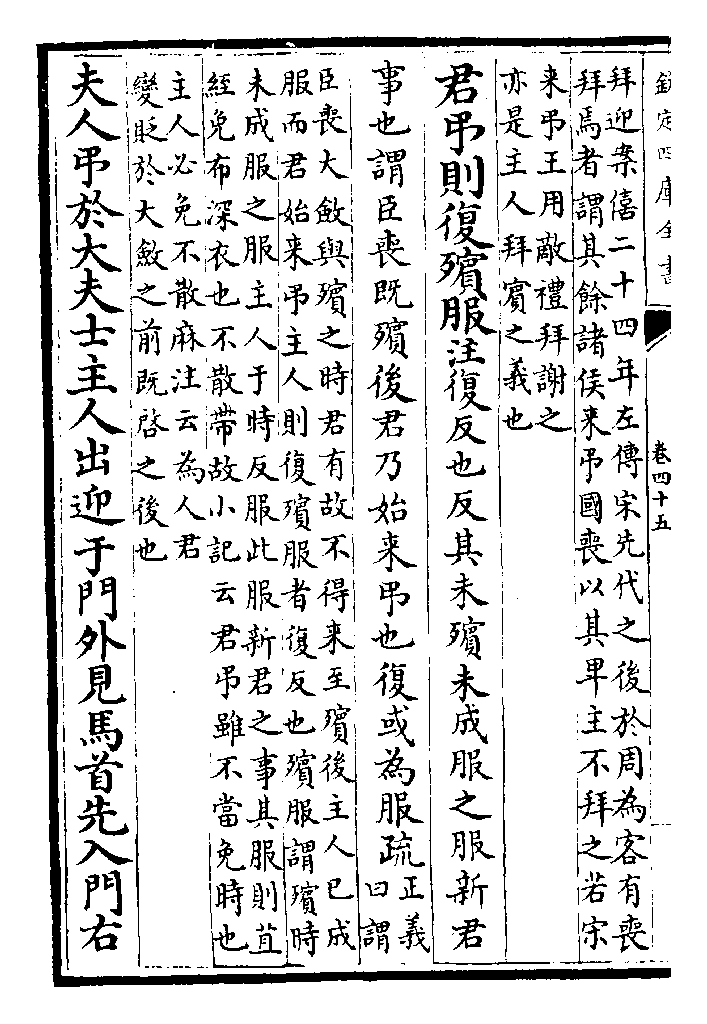 欽定四庫全書
卷四十五
拜迎案僖二十四年左傳宋先代之後於周為客有喪
拜焉者謂其餘諸侯來弔國喪以其卑主不拜之若宋
来弔王用敵禮拜謝之
亦是主人拜賓之義也
君弔則復殯服注復反也反其未殯未成服之服新君
事也謂臣喪既殯後君乃始来弔也復或為服疏正義
曰謂
臣喪大斂與殯之時君有故不得来至殯後主人已成
服而君始来弔主人則復殯服者復反也殯服謂殯時
未成服之服主人于時反服此服新君之事其服則苴
絰免布深衣也不散帶故小記云君弔雖不當免時也
主人必免不散麻注云為人君
變貶於大斂之前既啓之後也
夫人弔於大夫士主人出迎于門外見馬首先入門右